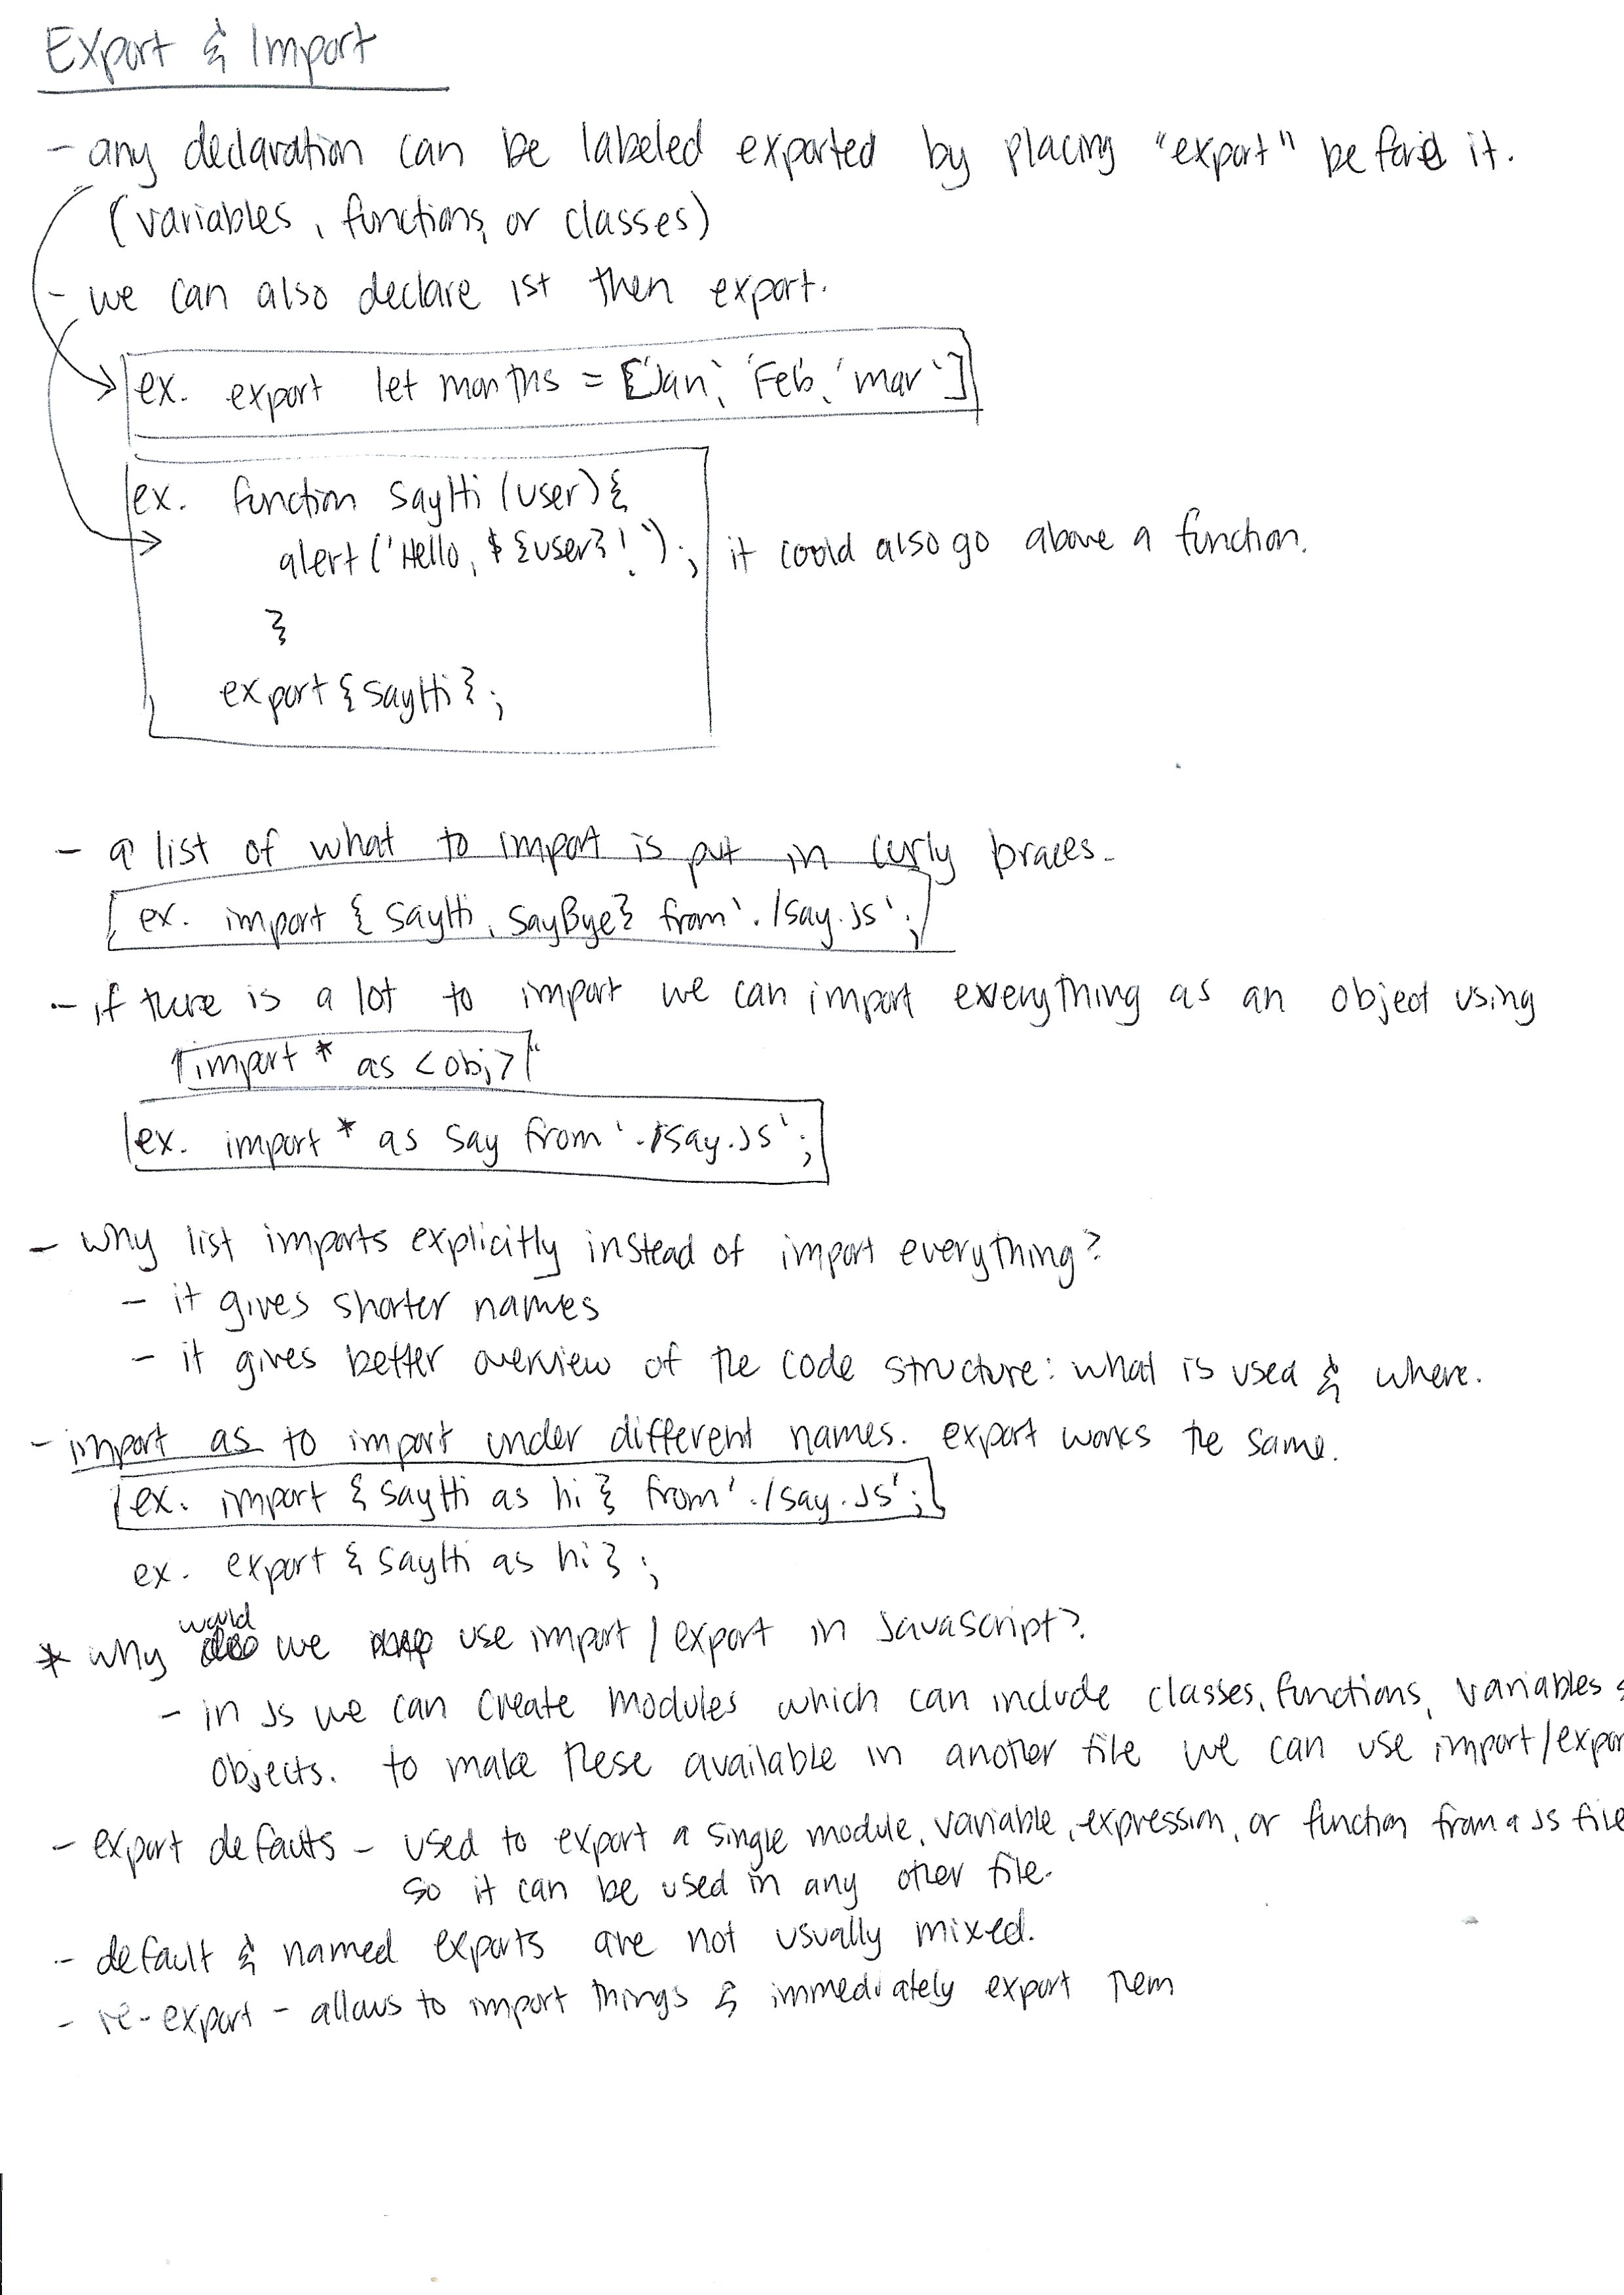 Export & Import
- any declaration can be labeled exported by placing "export" before it.
(variables, functions, or classes)
- we can also declare 1st then export.
ex. export let months = ['Jan', 'Feb', 'mar']
ex. function sayHi (user) {
alert ('Hello, ${user}!');
it could also go above a function.
}
export {sayHi};
- a list of what to import is put in curly braces.
ex. import { sayHi, sayBye} from './say.js';
- if there is a lot to import we can import everything as an object using
"import * as <obj>"
ex. import * as say from './say.js';
- why list imports explicitly instead of import everything?
- it gives shorter names
- it gives better overview of the code structure: what is used & where.
- import as to import under different names. export works the same.
ex. import { sayHi as hi } from './say.js';
ex. export { sayHi as hi };
* why would we use import / export in Javascript?
- in Js we can create modules which can include classes, functions, variables
objects. to make these available in another file we can use import/expor
- export defaults - used to export a single module, variable, expression, or function from a JS file
so it can be used in any other file.
- default & named exports are not usually mixed.
- re-export - allows to import things & immediately export them